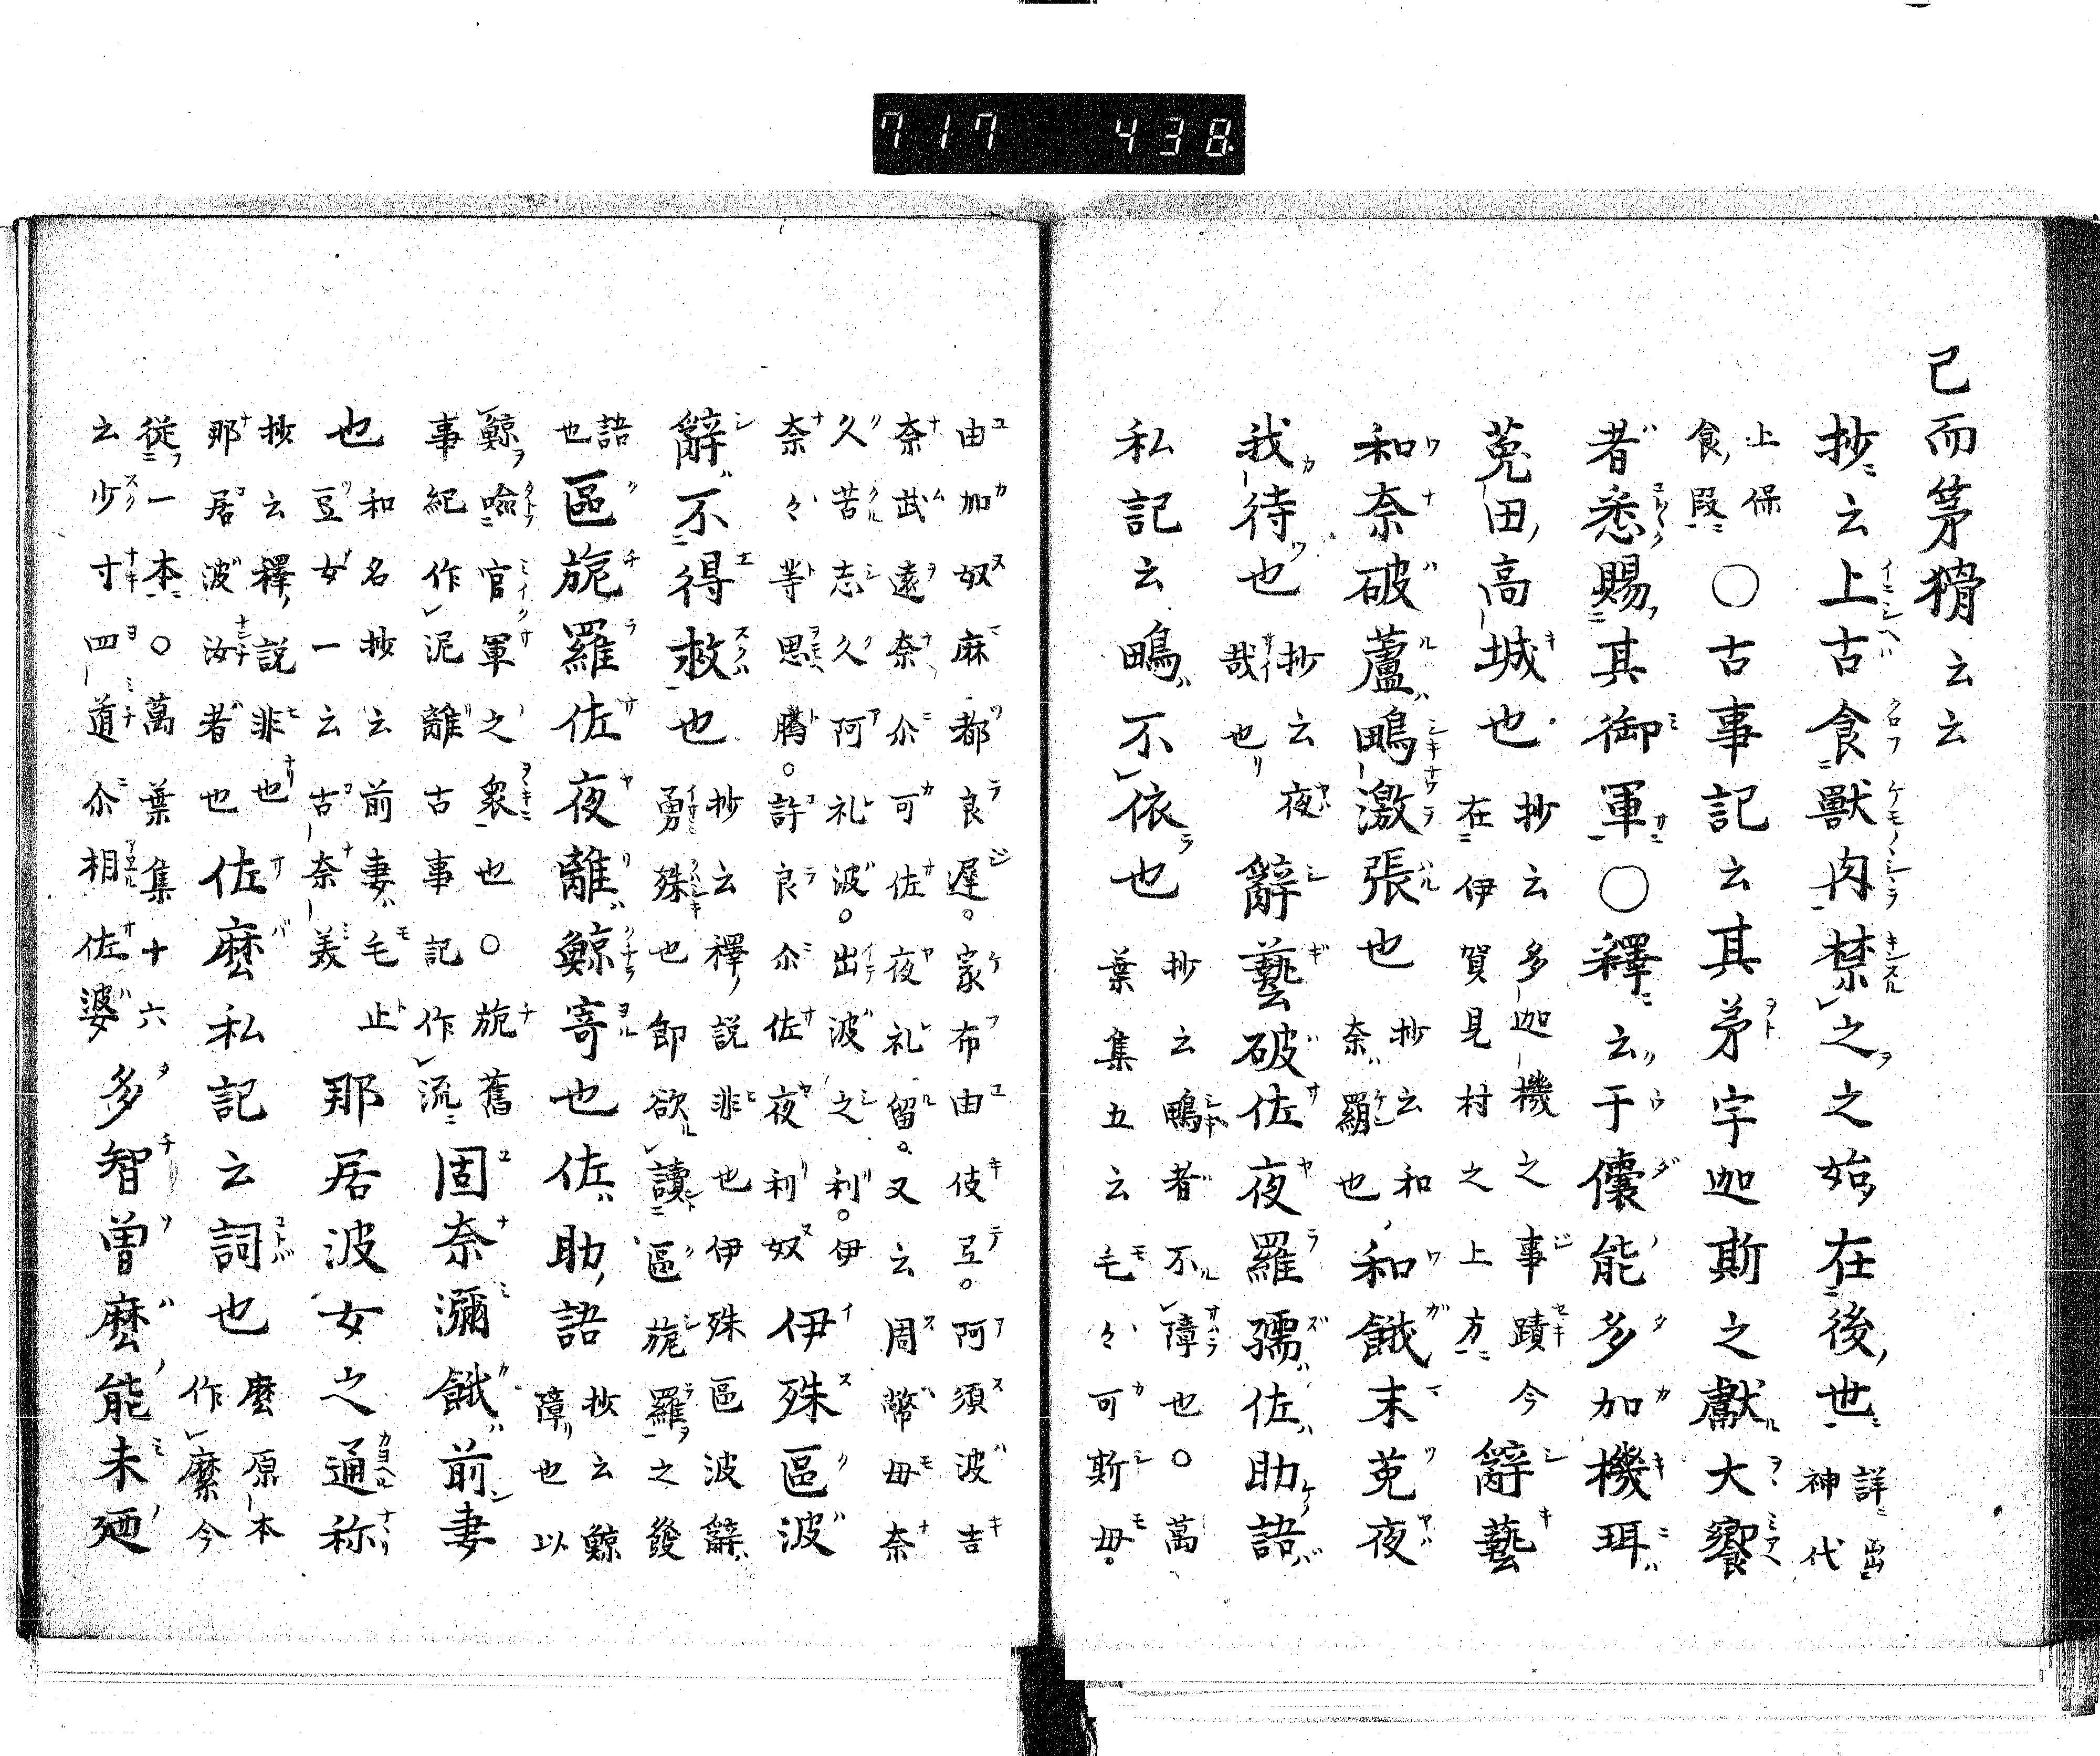 717 438
已而第猾云云
抄云上古食獸肉禁之之始在後世詳出
神代
上保
食段〇古事記云其弟宇迦斯之獻大饗
者悉賜其御軍〇釋云于儾能多加機珥
菟田高城也抄云多迦機之事蹟今
在伊賀見村之上方辭藝
和奈破蘆鴫激張也抄云和
奈羂也和餓末菟夜
我待也抄云夜
哉也辭藝破佐夜羅孺佐助語
私記云鴫不依也抄云鴫者不障也〇萬
葉集五云毛々可斯毋
由加奴麻都良遲家布由伎弖阿須波吉
奈武遠奈尒可佐夜礼留又云周幣毋奈
久苦志久阿礼波出波之利伊
奈々等思騰許良尒佐夜利奴伊殊區波
辭不得救也抄云釋說非也伊殊區波辭
勇殊也即欲讀區旎羅之發
語
也區旎羅佐夜離鯨寄也佐助語抄云鯨
障也以
鯨喩官軍之衆也〇旎舊
事紀作泥離古事記作流固奈瀰餓前妻
也和名抄云前妻毛止
豆女一云古奈美那居波女之通称
抄云釋說非也
那居波汝者也佐麼私記云詞也麼原本
作縻今
從一本〇萬葉集十六
云少寸四道尒相佐婆多智曽麼能未廼